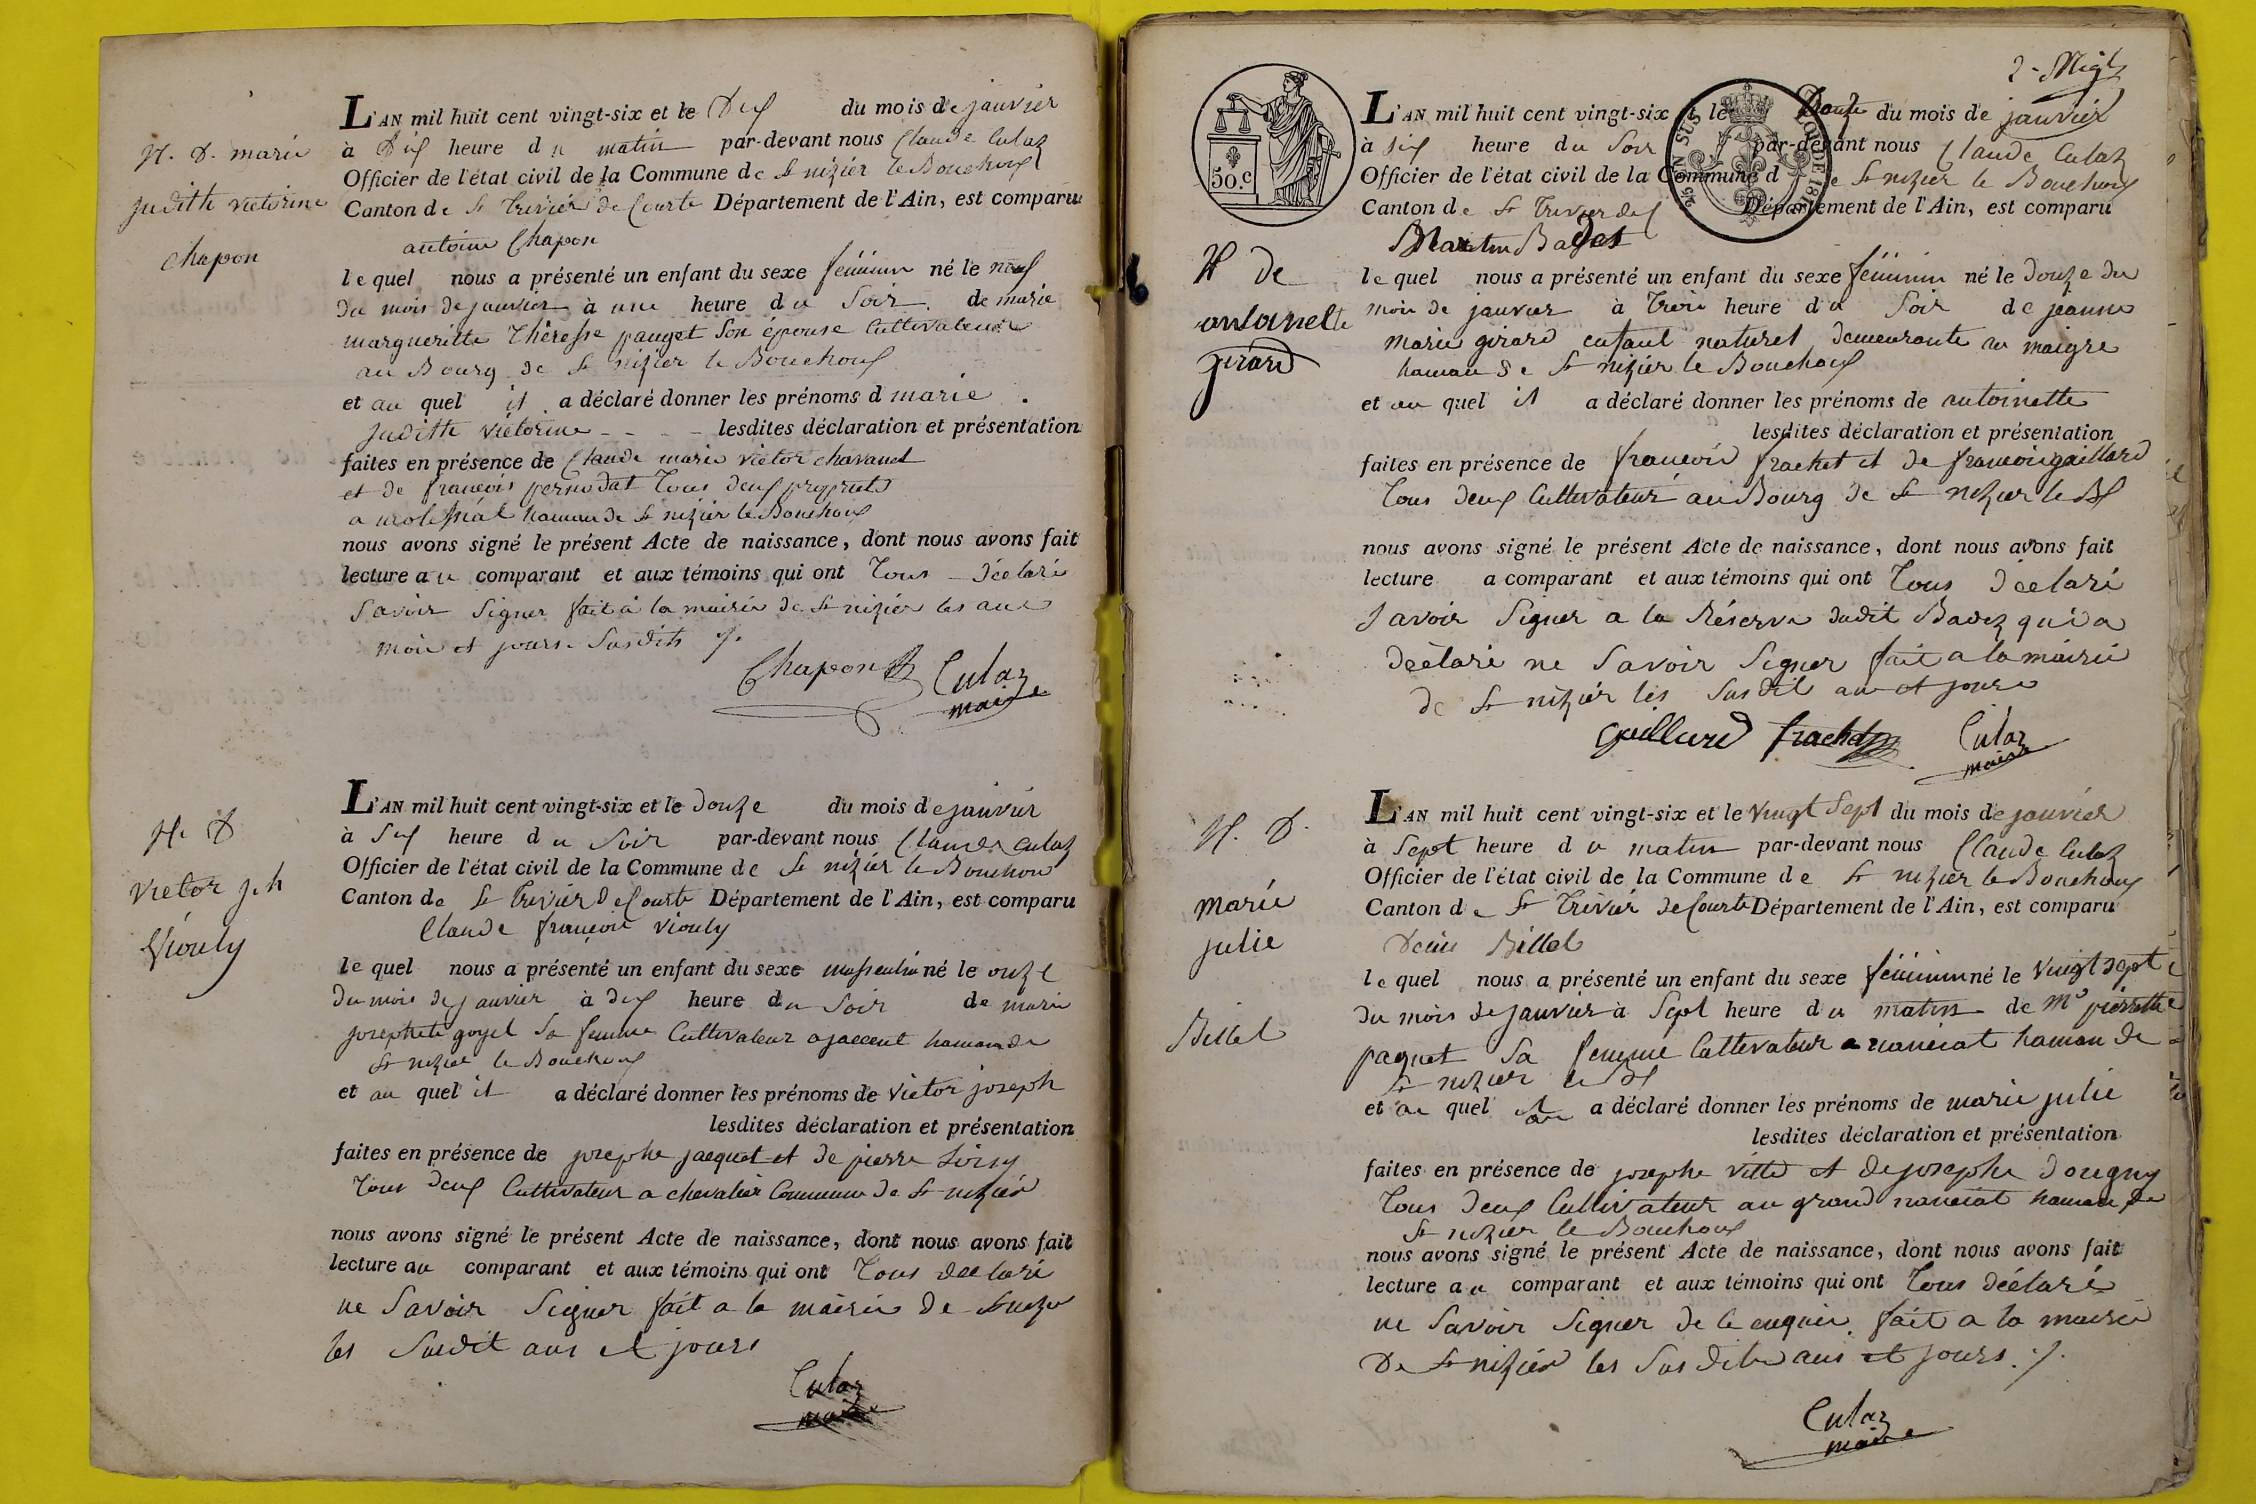 N. D. marie
judith victorine
chapon
L'AN mil huit cent vingt-six et le Dix du mois de janvier
à Dix heure du matin par-devant nous Claude Culaz
Officier de l'état civil de la Commune de St nizier le Bouchoux
Canton de St Trivier de Courte Département de l'Ain, est comparu
antoine Chapon
le quel nous a présenté un enfant du sexe féminin né le neuf
du mois de janvier à une heure du Soir de marie
margueritte Théresse pauget Son épouse Cultivateur
au Bourg de St nizier le Bouchoux
et au quel il a déclaré donner les prénoms d marie
judith victorine - - - lesdites déclaration et présentation
faites en présence de Claude marie victor chavanel
et de françois pernodat Tous deux
a hamau de St nizier le Bouchoux
nous avons signé le présent Acte de naissance, dont nous avons fait
lecture au comparant et aux témoins qui ont Tous Déclaré
Savoir Signer fait à la mairie de St nizier les ans
mois et jours Susdits
Chapon Culaz
maire
N. D
victor jph
Viouly
L'AN mil huit cent vingt-six et le Douze du mois de janvier
à Six heure du Soir par-devant nous Claude Culaz
Officier de l'état civil de la Commune de St nizier le Bouchoux
Canton de St Trivier de Courte Département de l'Ain, est comparu
Claude françois Viouly
le quel nous a présenté un enfant du sexe masculin né le onze
du mois de janvier à dix heure du Soir de marie
josephete goyel Sa femme Cultivateur a jaccent hamau de
St nizier le Bouchoux
et au quel il a déclaré donner les prénoms de victor joseph
lesdites déclaration et présentation
faites en présence de josephe jacquet et de pierre Loisy
Tous deux Cultivateur a chevalier Commune de St nizier
nous avons signé le présent Acte de naissance, dont nous avons fait
lecture au comparant et aux témoins qui ont Tous declaré
ne Savoir Signer fait a la mairie de St nizier
les Susdit ans et jours
Culaz
maire
50.c
2-
N D e
antoinette
girard
L'AN mil huit cent vingt-six et le Douze du mois de janvier
à Six heure du Soir par-devant nous Claude Culaz
Officier de l'état civil de la Commune de St nizier le Bouchoux
Canton de St Trivier de C Département de l'Ain, est comparu
Martin Badet
le quel nous a présenté un enfant du sexe féminin né le Douze du
mois de janvier à Trois heure du Soir de jeanne
marie girard enfant naturel demeurante au maigre
hamau de St nizier le Bouchoux
et au quel il a déclaré donner les prénoms de antoinette
lesdites déclaration et présentation
faites en présence de françois frachet et de françois gaillard
Tous deux Cultivateur au Bourg de St nizier le Bx
nous avons signé le présent Acte de naissance, dont nous avons fait
lecture a comparant et aux témoins qui ont Tous déclaré
Savoir Signer a la Réserve dudit Badez qui a
déclaré ne Savoir Signer fait a la mairie
de St nizier les Susdit ans et jours
Gaillard frachet Culaz
maire
N. D.
marie
julie
Billet
L'AN mil huit cent vingt-six et le Vingt Sept du mois de janvier
à Sept heure du matin par-devant nous Claude Culaz
Officier de l'état civil de la Commune de St nizier le Bouchoux
Canton de St Trivier de Courte Département de l'Ain, est comparu
Denis Billet
le quel nous a présenté un enfant du sexe féminin né le Vingt Sept
du mois de janvier à Sept heure du matin de me pierrette
paquet Sa femme Cultivateur a nanciat hamau de
St nizier le Bx
et au quel il a déclaré donner les prénoms de marie julie
lesdites déclaration et présentation
faites en présence de josephe ville et de josephe Dougny
Tous Deux Cultivateur au grand nanciat hamau de
St nizier le Bouchoux
nous avons signé le présent Acte de naissance, dont nous avons fait
lecture au comparant et aux témoins qui ont Tous déclaré
ne Savoir Signer de ce enquis. fait a la mairie
De St nizier les Susdits ans et jours
Culaz
maire